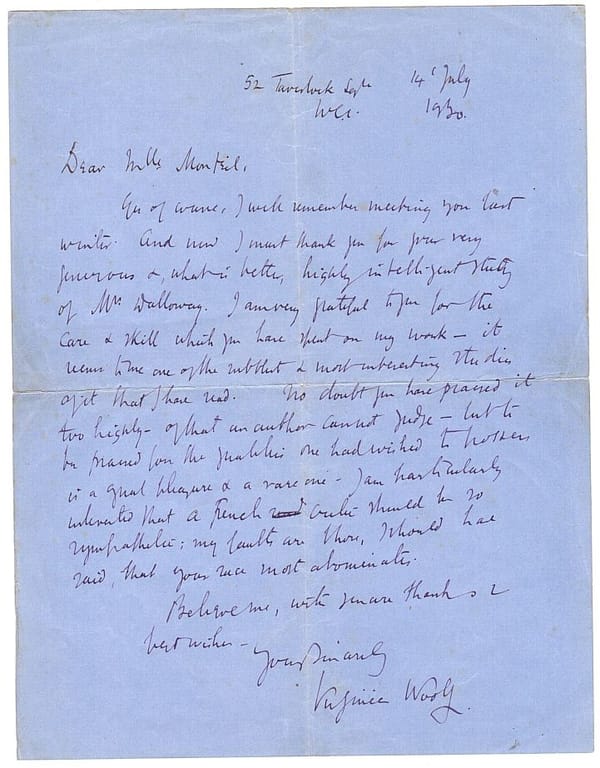 52 Tavistock Sqre 14th July
WC1. 1930.
Dear Mlle Monteil,
Yes of course, I well remember meeting you last
winter. And now I must thank you for your very
generous &, what is better, highly intelligent study
of Mrs Dalloway. I am very grateful to you for the
care & skill which you have spent on my work — it
seems to me one of the subtlest & most interesting studies
of it that I have read. No doubt you have praised it
too highly — of that an author cannot judge — but to
be praised for the qualities one had wished to possess
is a great pleasure & a rare one — I am particularly
interested that a French critic should be so
sympathetic; my faults are those, I should have
said, that your race most abominates.
Believe me, with sincere thanks &
best wishes —
Yours sincerely
Virginia Woolf